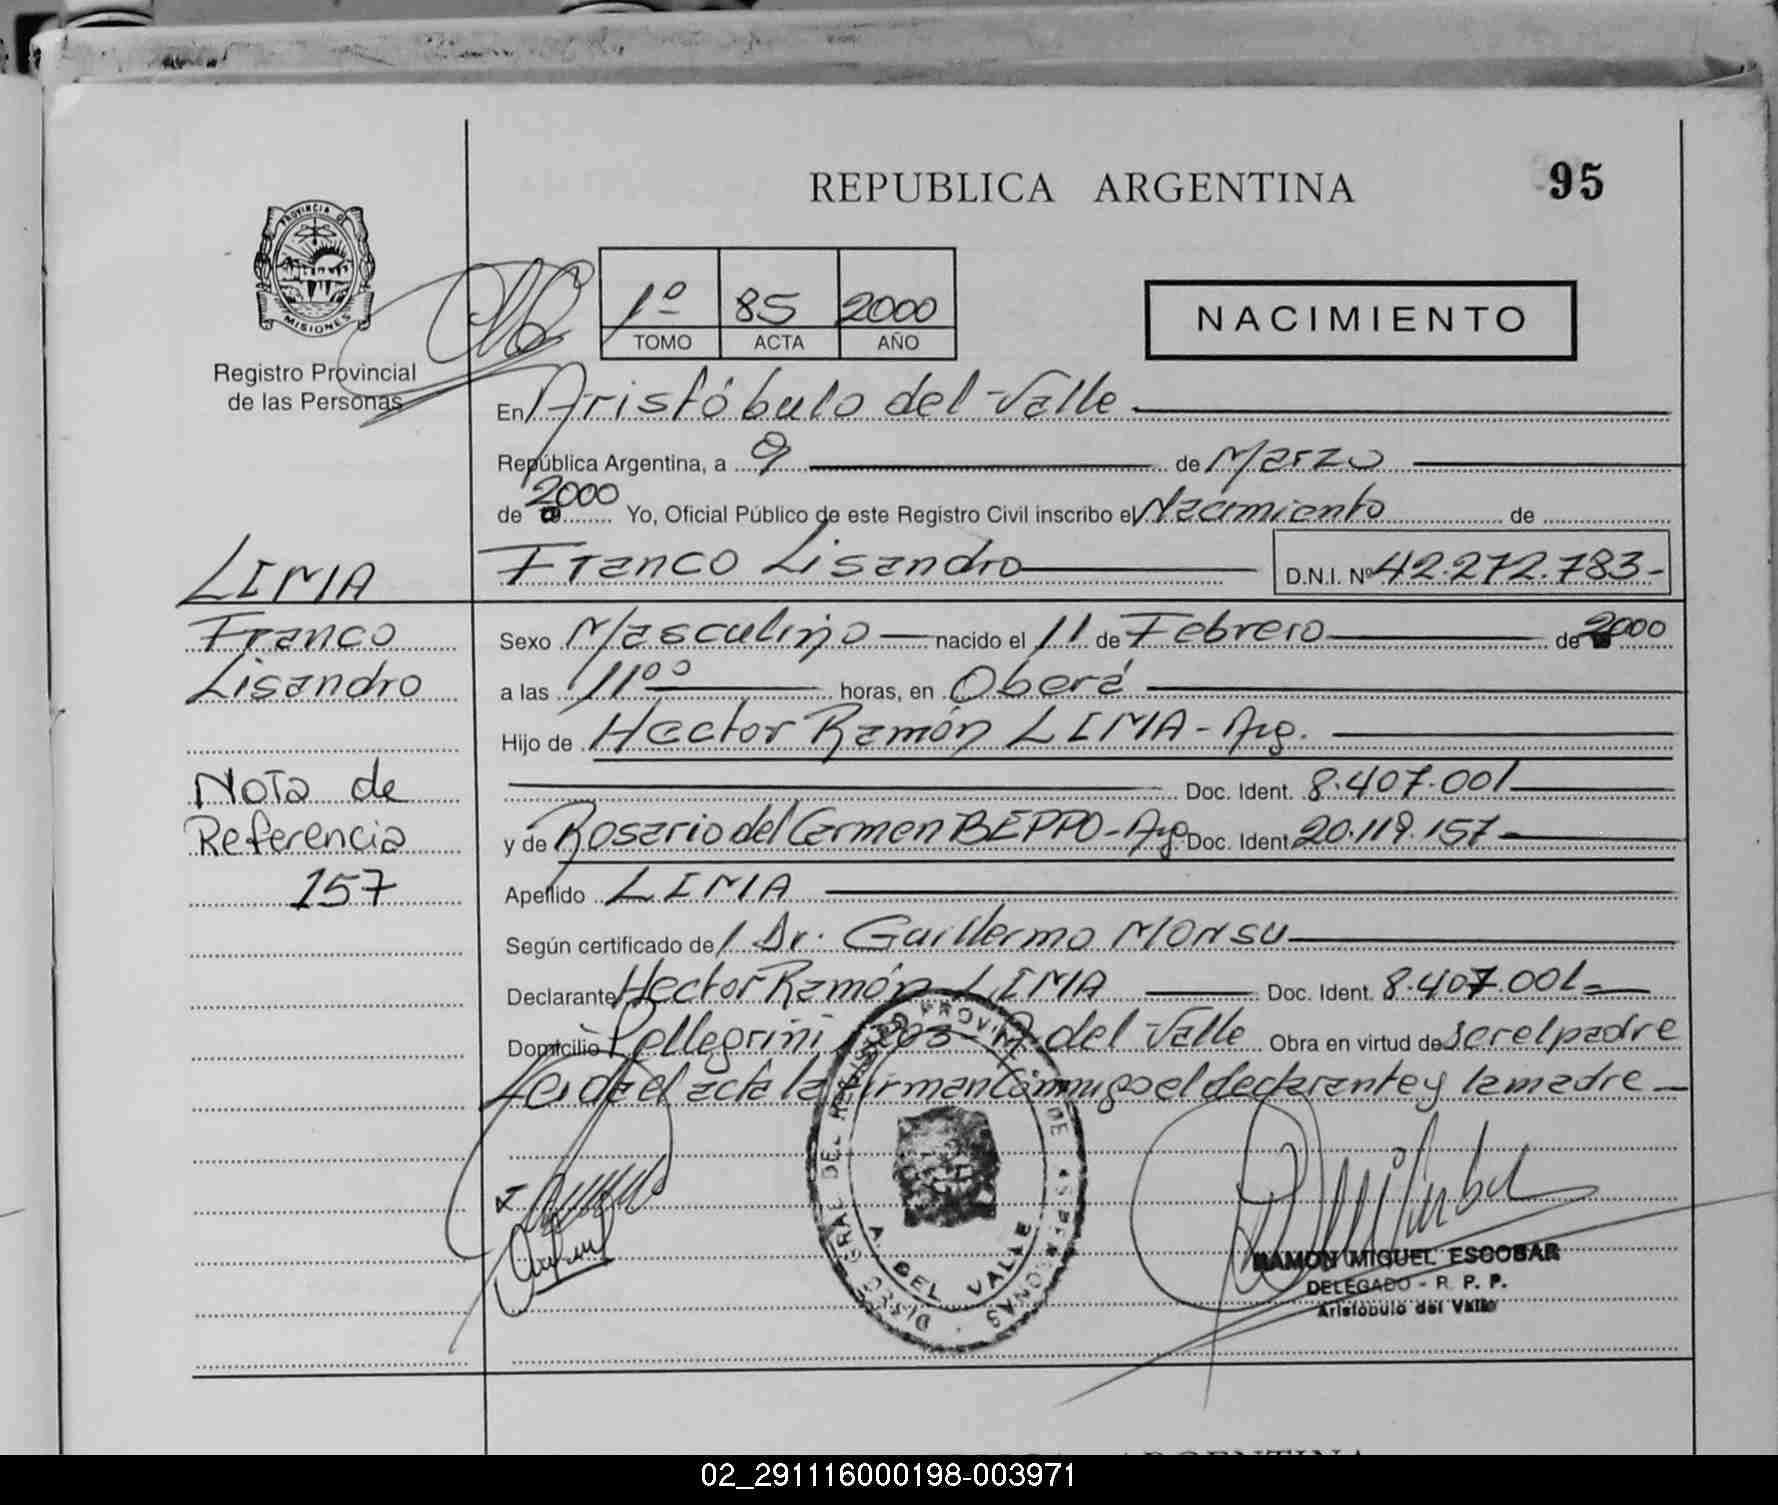 REPUBLICA ARGENTINA 95
PROVINCIA DE
MISIONES
Registro Provincial
de las Personas
1º 85 2000
TOMO ACTA AÑO
NACIMIENTO
En Aristóbulo del Valle
República Argentina, a 9 de Marzo
de 2000 Yo, Oficial Público de este Registro Civil inscribo el Nacimiento de
Franco Lisandro D.N.I. Nº 42.272.783-
LIMA
Franco
Lisandro
Sexo Masculino nacido el 11 de Febrero de 2000
a las 11ºº horas, en Oberá
Hijo de Hector Ramón LIMA - Arg.
Doc. Ident. 8.407.001
y de Rosario del Carmen BEPPO - Arg. Doc. Ident. 20.119.157
Apellido LIMA
Nota de
Referencia
157
Según certificado de Dr. Guillermo MONSU
Declarante Hector Ramón LIMA Doc. Ident. 8.407.001
Domicilio Pellegrini A. del Valle Obra en virtud de ser el padre
Leida el acta la firman conmigo el declarante y la madre
A. DEL VALLE
RAMON MIGUEL ESCOBAR
DELEGADO - R. P. P.
Aristóbulo del Valle
02_291116000198-003971